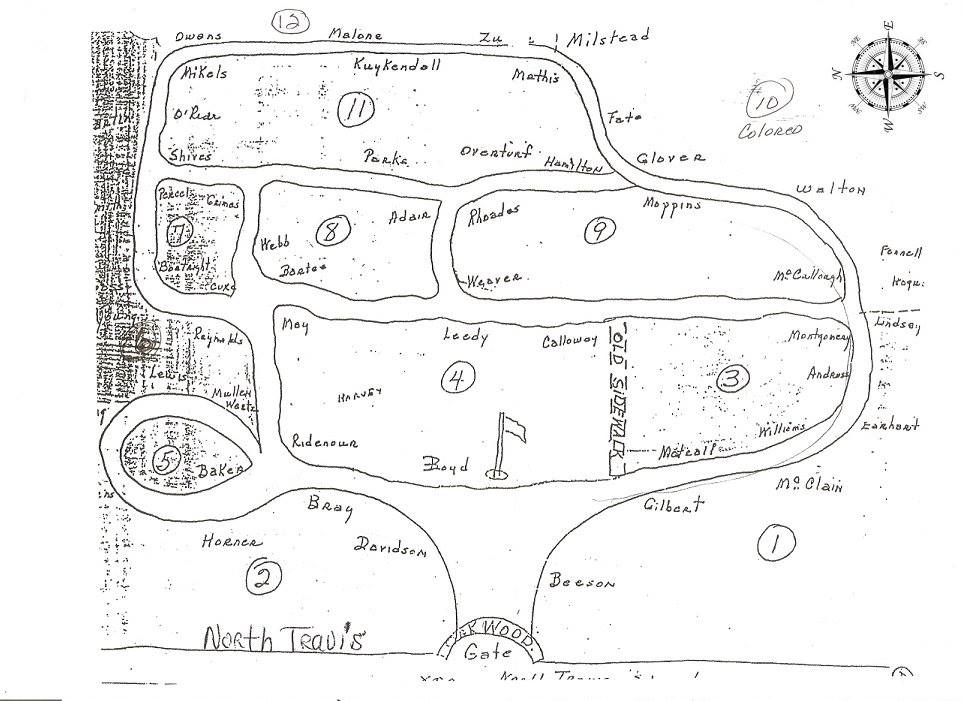 12
Owens
Malone
Zu
Milstead
E
NE
SE
N
S
NW
SW
W
Mikels
Kuykendall
Mathis
10
COLORED
O'Rear
11
Fate
Shives
Parks
Overturf
Hamilton
Glover
Walton
Pencel
Grimes
Adair
Rhoades
Moppins
7
8
9
Webb
Boatright
Bartee
Weaver
McCullough
Farnell
Cuke
Moy
Leedy
Calloway
OLD SIDEWALK
Montgomery
Lindsey
6
Reynolds
4
3
Andress
Lewi
HARVEY
Mullen
Wertz
Ridenour
Boyd
Metcalf
Williams
Earhart
5
Baker
Bray
Gilbert
McClain
Horner
Davidson
1
2
Beeson
North Travis
WOOD
Gate